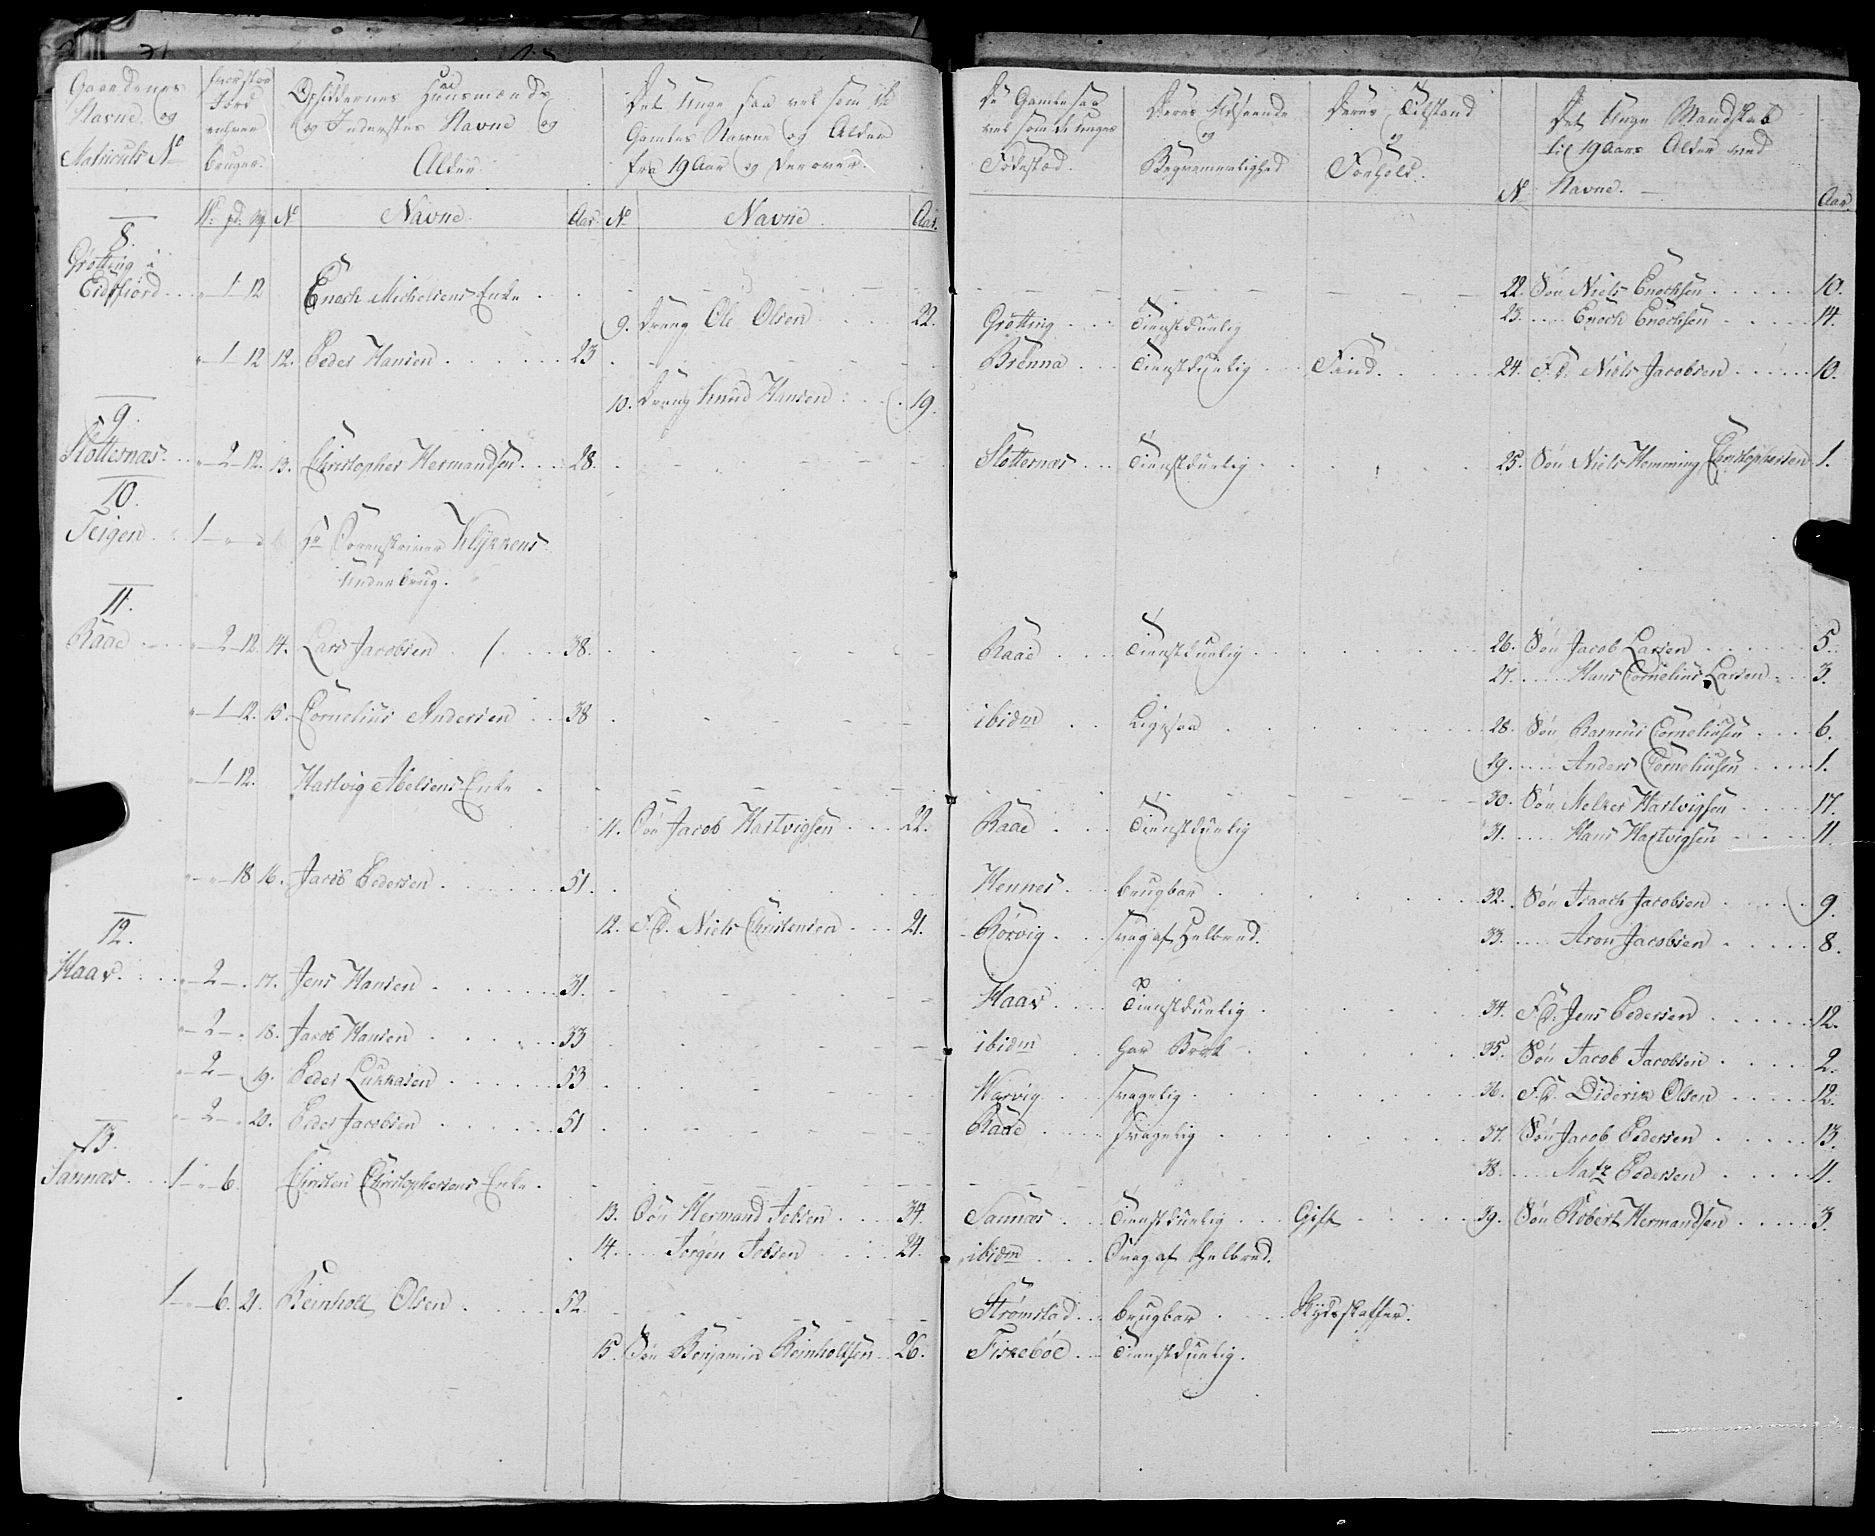 Gaardenes Navne og Matriculs No
hvor stor Jord enhver bruger.
Opsiddernes Huusmænds og Indersters Navne og Alder.
Det Unge saa vel som de Gamles Navne og Alder fra 19 Aar og derover.
De Gamle saa vel som de unges Fødested.
Deres Udseende og Beqvemmelighed
Deres Tilstand og Forhold.
Det Unge Mandskab til 19 Aars Alder ved Navne.
W. pd. mg No Navne Aar No Navne Aar. No Aar.
8.
Grøtting i Eidsfiord . . „ 1 12 Enoch Michelsens Enke . 22. Søn Niels Enochsen . . . 10.
9. Dreng Ole Olsen . . . 22. Grøtting . . Tienstduelig 23. . . Enoch Enochsen . . . 14.
„ 1 12 12. Peder Hansen . . . 23 Brenna . . Tienstduelig . . Find . . 24. F.S. Niels Jacobsen . . . 10.
10. Dreng Knud Hansen . . 19.
9.
Slotternæs . . „ 2 12. 13. Christopher Hermandsen . . . 28. Slotternæs . . Tienstduelig . . 25. Søn Niels Hemming Christophersen 1.
10.
Teigen . . 1 „ „ Hr Sorenskriver Klykkens
Underbrug.
11.
Raae . . „ 2 12. 14. Lars Jacobsen . . . 38. Raae . . Tienstduelig . . 26. Søn Jacob Larsen . . . 5.
27. . . Hans Cornelius Larsen . . 3.
„ 1 12. 15. Cornelius Andersen . . 38 ibidm . . Ligesaa . . 28. Søn Rasmus Corneliusen . . . 6.
19. . . Anders Corneliusen . . . 1.
„ 1 12. Hartvig Abelsens Enke . 30. Søn Melker Hartvigsen . . . 17.
11. Søn Jacob Hartvigsen . . . 22. Raae . . Tienstduelig 31. . . Hans Hartvigsen . . . 11.
„ „ 18 16. Jacob Pedersen . . . 51. Hennes . . brugbar . . 32. Søn Isaach Jacobsen . . . 9.
12. F.S. Niels Christensen . . . 21. Rørvig . . svag af Helbred. 33. . . Aron Jacobsen . . . 8.
12.
Haav . . „ 2 „ 17. Jens Hansen . . . 31. Haav . . Tienstduelig . . 34. F.S. Jens Pedersen . . . 12.
„ 2 „ 18. Jacob Hansen . . . 33 ibidm . . har Brok . . 35. Søn Jacob Jacobsen . . . 2.
„ 2 „ 19. Peder Lukkasen . . . 53 . . svagelig . . 36. F.S. Diderik Olsen . . . 12.
„ 2 „ 20. Peder Jacobsen . . . 51 Raae . . svagelig . . 37. Søn Jacob Pedersen . . . 13.
13.
Sannæs . . 1 „ 6. Christen Christophersens Enke . 38. . . Matz Pedersen . . . 11.
13. Søn Hermand Jebsen . . . 34. Sannæs . . Tienstduelig . . Gift . . 39. Søn Robert Hermandsen . . . 3.
14. . . Jørgen Jebsen . . . 24. ibidm . . Svag af Helbred.
1 „ 6. 21. Reinholt Olsen . . . 52. Strømstad . . brugbar . . Skydsskaffer.
15. Søn Benjamin Reinholtsen . . 26. Fiskebøe . . Tienstduelig.